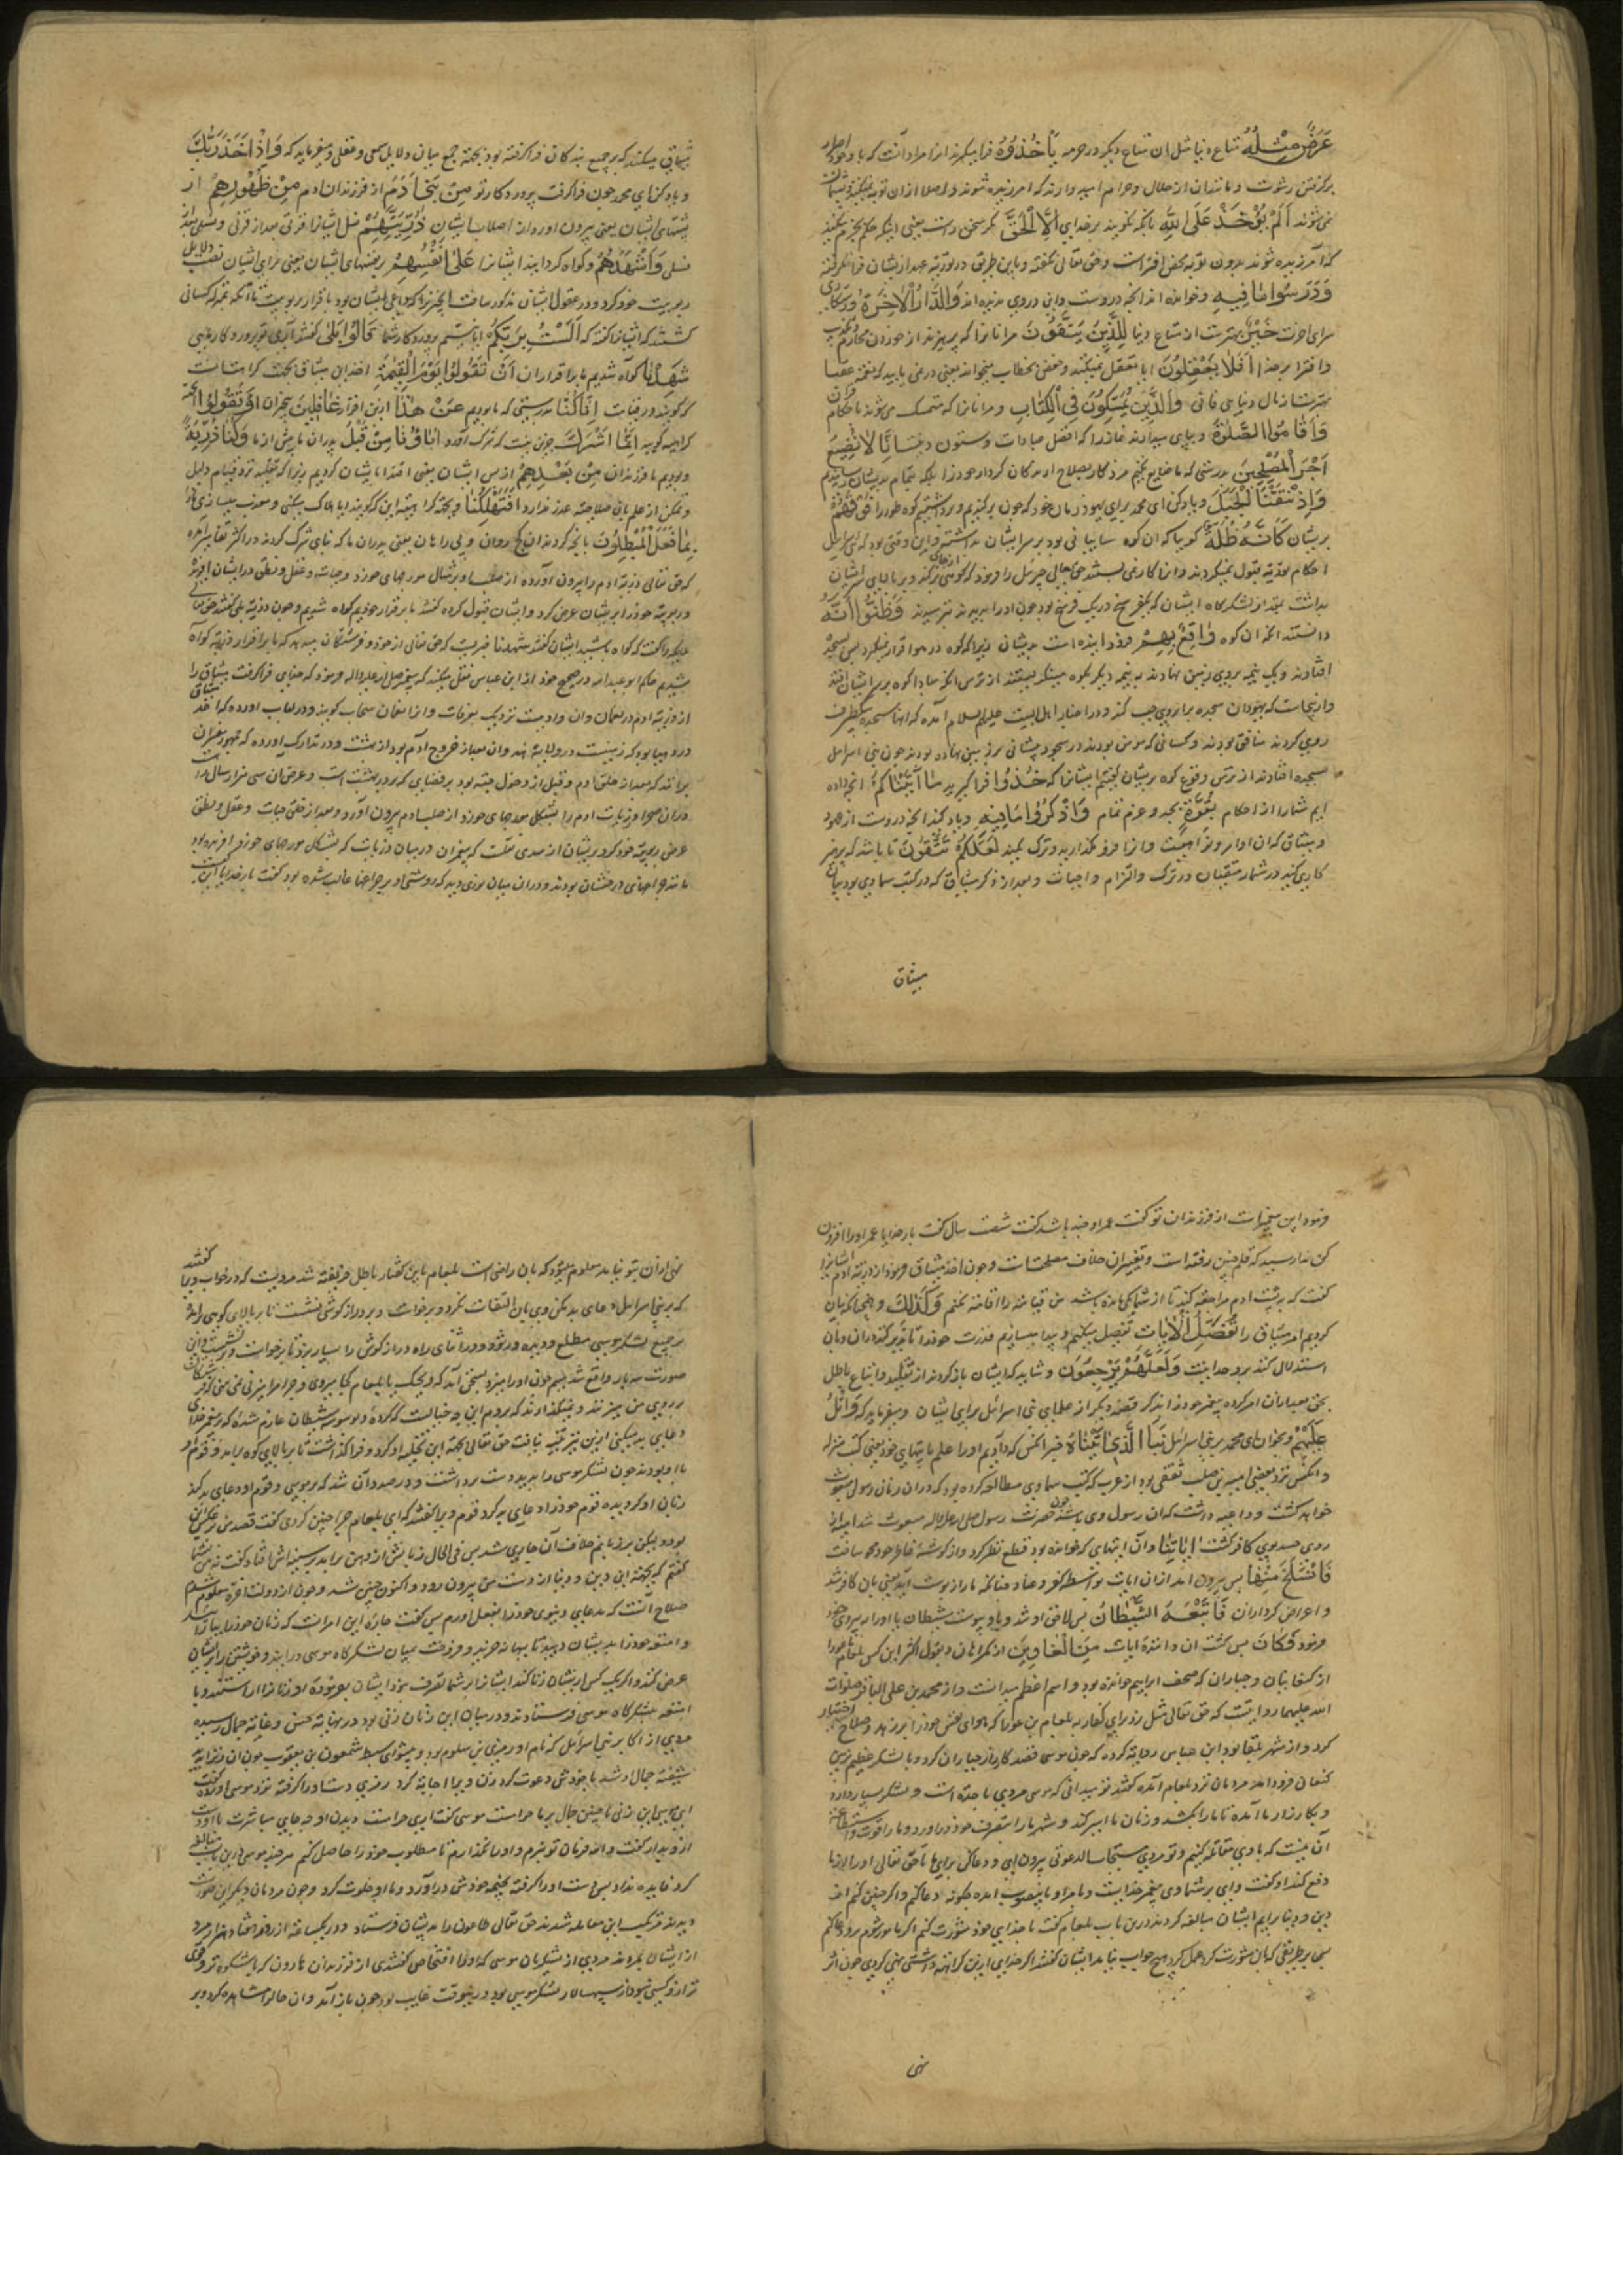 عَرَضٌ مِثْلُهُ متاع دنیا مثل ان متاع دیکر در حرمة یَأْخُذُوهُ فرا میکیرند انرا مراد آنست که با وجود اصرار
بر کرفتن رشوت و مانند ان از حلال و حرام امیدوارند که امرزیده شوند و اصلا ازان توبه نمیکنند و پشیمان
نمی شوند اَلَمْ یُؤْخَذْ عَلَی اللهِ بانکه نکویند بر خدای اِلَّا الْحَقَّ مکر سخن راست یعنی اینکه حکم بجزم میکنند
که آمرزیده شوند بدون توبه محض افتراست و حق تعالی نکفته و باین طریق در توریة عهد از یشان فرا نکرفته
وَدَرَسُوا مَا فِیهِ و خوانده اند انچه دروست وَالدَّارُ الْاٰخِرَةُ
سرای اخرت خَیْرٌ بهترست از متاع دنیا لِلَّذِینَ یَتَّقُونَ مر انانرا که پرهیزند از خوردن محارم
و افترا بر خدا اَفَلَا یَعْقِلُونَ ایا تعقل نمیکنند و حفص بخطاب میخواند یعنی در نمی یابید که نعمت عقبا
بهترست از مال دنیای فانی وَالَّذِینَ یُمَسِّکُونَ فِی الْکِتَابِ و مر انانرا که متمسک می شوند باحکام
وَاَقَامُوا الصَّلٰوةَ و بپای میدارند نماز را که افضل عبادات و ستون دینست اِنَّا لَا نُضِیعُ
اَجْرَ الْمُصْلِحِینَ بدرستی که ما ضایع نکنیم مزد کار بصلاح ارندکان کردار خود را بلکه بتمام بدیشان رسانیم
وَاِذْ نَتَقْنَا الْجَبَلَ و یاد کن ای محمد برای یهود زمان خود که چون برکندیم و برداشتیم کوه طور را فَوْقَهُمْ
بریشان کَاَنَّهُ ظُلَّةٌ کویا که ان کوه سایبانی بود بر سر ایشان بداشته و این وقتی بود که بنی اسرائیل
احکام توریة قبول نمیکردند حق تعالی جبرئیل را فرمود که کوهی از جای برکند و بر بالای سر ایشان
بداشت بقدر لشکرکاه ایشان که یک فرسخ در یک فرسخ بود چون او را بدیدند بترسیدند وَظَنُّوا اَنَّهُ
دانستند انکه ان کوه وَاقِعٌ بِهِمْ فرود اینده است بدیشان زیرا که کوه در هوا قرار نمیکیرد پس بسجده
افتادند و یک نیمه روی بر زمین نهادند به نیمه دیکر بکوه مینکریستند از ترس انکه مبادا کوه بر سر ایشان افتد
وازینجاست که یهودان سجده بر ابروی چپ کنند و در اخبار اهل البیت علیهم السلام آمده که انها سجده بیکطرف
روی کردند منافق بودند و کسانی که مومن بودند در سجود پیشانی بر زمین نهاده بودند چون بنی اسرائیل
بسجده افتادند از ترس وقوع کوه بریشان کفتیم ایشانرا که خُذُوا فرا کیرید مَا اٰتَیْنَاکُمْ انچه داده
ایم شما را از احکام بِقُوَّةٍ بجد و عزم تمام وَاذْکُرُوا مَا فِیهِ و یاد کنید انچه دروست از عهود
و میثاق که ان اوامر و نواهیست و انرا فرو مکذارید و ترک مکنید لَعَلَّکُمْ تَتَّقُونَ تا باشد که پرهیز
کاری کنید در شمار متقیان در ترک و التزام واجبات و بعد از ذکر میثاق که در کتب سماوی بود بیان
میثاق
میثاقی میکند که بر جمیع بندکان فرا کرفته بود بجهة جمع میان دلایل سمعی و عقلی و میفرماید که وَاِذْ اَخَذَ رَبُّكَ
و یاد کن ای محمد چون فرا کرفت پروردکار تو مِنْ بَنِي اٰدَمَ از فرزندان ادم مِنْ ظُهُورِهِمْ از
پشتهای ایشان یعنی بیرون اورد از اصلاب ایشان ذُرِّیَّتَهُمْ نسل ایشانرا قرنی بعد از قرنی و نسلی بعد از
نسلی وَاَشْهَدَهُمْ و کواه کردانید ایشانرا عَلٰی اَنْفُسِهِمْ بر نفسهای ایشان یعنی برای ایشان نصب دلایل
ربوبیت خود کرد و در عقول ایشان مذکور ساخت بمنزله کسانی
کشتند که ایشانرا کفته که اَلَسْتُ بِرَبِّکُمْ ایا نیستم پروردکار شما قَالُوا بَلٰی کفتند آری تو پروردکار مایی
شَهِدْنَا کواه شدیم ما باقرار ان اَنْ تَقُولُوا یَوْمَ الْقِیٰمَةِ اخذ این میثاق بجهت کراهتست
که کویند روز قیامت اِنَّا کُنَّا بدرستی که ما بودیم عَنْ هٰذَا ازین اقرار غَافِلِینَ بیخبران اَوْ تَقُولُوا
کراهیه کویید اِنَّمَا اَشْرَكَ جزین نیست که شرک آورد اٰبَاؤُنَا مِنْ قَبْلُ پدران ما پیش از ما وَکُنَّا ذُرِّیَّةً
و بودیم ما فرزندان مِنْ بَعْدِهِمْ از پس ایشان یعنی اقتدا بایشان کردیم زیرا که تقلید نزد قیام دلیل
و تمکن از علم بان صلاحیة عذر ندارد اَفَتُهْلِکُنَا و بجهة کراهیة این که کویند ایا هلاک میکنی و معذب میسازی ما را
بِمَا فَعَلَ الْمُبْطِلُونَ بانچه کردند ان کج روان و بی راهان یعنی پدران ما که بنای شرک کردند در اکثر تفاسیر آمده
که حق تعالی ذریة ادم را بیرون آورده از صلب او بمثال مورچهای خورد و حیات و عقل و نطق در ایشان افرید
و ربوبیة خود را بریشان عرض کرد و ایشان قبول کرده کفتند ما بر اقرار خودیم کواه شدیم و چون ذریة بلی کفتند حق تعالی
ملیکه را کفت که کواه باشید ایشان کفتند شهدنا خبریست که حق تعالی از خود و فرشتکان میدهد که ما بر اقرار ذریة کواه
شدیم حاکم ابو عبدالله در صحیح خود از ابن عباس نقل میکند که پیغمبر صلی الله علیه واله فرمود که خدای فرا کرفت میثاق را
از ذریة ادم در نعمان و ان وادیست نزدیک بعرفات و انرا نعمان سحاب کویند و در لباب اورده که اخذ میثاق
در دهنا بود که زمینیست در ولایة هند و ان بعد از خروج آدم بود از بهشت و در مدارک آورده که جمهور مفسران
برانند که بعد از خلق ادم و قبل از دخول جنة بود بر فضای که بر در بهشت است و عرض آن سی هزار سال راه
دران صحرا ذریات ادم را بشکل مورچهای خورد از صلب ادم بیرون آورد و بعد از خلق حیات و عقل و نطق
عرض ربوبیة خود کرد بریشان از سدی نقلست که پیغمبران در میان ذریات که بشکل مورچهای خورد افریده بود
مانند چراغهای درخشان بودند و دران میان نوری دید که روشنی او بر چراغها غالب شده بود کفت بار خدایا این کیست
فرمود این پیغمبریست از فرزندان تو کفت عمر او چند باشد کفت شصت سال کفت بار خدایا عمر او را افزون
کن ندا رسید که قلم چنین رفته است و تغییر ان خلاف مصلحتست و چون اخذ میثاق فرمود از ذریة ادم ایشانرا
کفت که بر پشت ادم مراجعه کنید تا از شما یکی مانده باشد من قیامة را اقامة نکنم وَکَذٰلِكَ و همچنانکه بیان
کردیم امر میثاق را نُفَصِّلُ الْاٰیَاتِ تفصیل میکنیم و پیدا میسازیم قدرت خود را تا تدبر کنند دران و بان
استدلال کنند بر وحدانیت وَلَعَلَّهُمْ یَرْجِعُونَ و شاید که ایشان باز کردند از تقلید و اتباع باطل
بحق بعد ازان امر کرده پیغمبر خود را بذکر قصهٔ دیکر از علمای بنی اسرائیل برای ایشان و میفرماید که وَاتْلُ
عَلَیْهِمْ و بخوان ای محمد بر بنی اسرائیل نَبَاَ الَّذِی اٰتَیْنَاهُ خبر انکس که دادیم او را علم بایتهای خود یعنی کتب منزله
و انکس نزد بعضی امیة بن صلت ثقفی بود از عرب که کتب سماوی مطالعه کرده بود که دران زمان رسولی مبعوث
خواهد کشت و داعیه داشت که ان رسول وی باشد چون حضرت رسول صلی الله علیه واله مبعوث شد امیه از
روی حسد بوی کافر کشت اٰیَاتِنَا و آن ایتهای که خوانده بود قطع نظر کرد و از کوشهٔ خاطر خود محو ساخت
فَانْسَلَخَ مِنْهَا پس بیرون امد ازان ایات بواسطه کفر و عناد چنانکه مار از پوست آید یعنی بان کافر شد
و اعراض کرد ازان فَاَتْبَعَهُ الشَّیْطَانُ پس لاحق او شد و باو پیوست شیطان یا او را به پیروی خود
فرمود فَکَانَ پس کشت ان دانندهٔ ایات مِنَ الْغَاوِینَ از کمراهان و بقول اکثر این کس بلعام باعورا
از کنعانیان و جباران که صحف ابراهیم خوانده بود و اسم اعظم میدانست و از محمد بن علی الباقر صلوات
الله علیهما روایتست که حق تعالی مثل زد برای کفار به بلعام بن عورا که هوای نفس خود را بر زهد و صلاح اختیار
کرد و از شهر بلقا بود ابن عباس روایة کرده که چون موسی قصد کارزار جباران کرد و با لشکر عظیم بزمین
کنعان فرود امد مردمان نزد بلعام آمده کفتند تو میدانی که موسی مردی با حدّة است و لشکر بسیار دارد
و بکارزار ما آمده تا ما را بکشد و زنان ما اسیر کند و شهر ما را بتصرف خود در اورد و ما را قوت و استطاعت
آن نیست که با وی مقاتله کنیم و تو مردی مستجاب الدعوتی بیرون ای و دعا کن برای ما تا حق تعالی او را از ما
دفع کند او کفت وای بر شما وی پیغمبر خداست و ما را و ما بنصرت امده چکونه دعا کنم و اکر چنین کنم از
دین و دنیا برایم ایشان مبالغه کردند درین باب بلعام کفت با خدای خود مشورت کنم اکر مامور شوم برو دعا کنم
پس بر طریقی که بان مشورت کردی عمل کرد هیچ جواب نیامد ایشان کفتند اکر خدای ازین کراهة داشتی نهی کردی چون اثر
نهی
نهی ازان بتو نیامد معلوم میشود که بان راضی است بلعام باین کفتار باطل فریفته شد مرویست که در خواب ویرا کفتند
که بر بنی اسرائیل دعای بد مکن وی بان التفات نکرد و برخواست و بر دراز کوشی نشست تا بر بالای کوهی براید
بر جمیع لشکر موسی مطلع و دیده ور شود و در اثنای راه دراز کوش را بسیار بزد تا برخواست
صورت سه بار واقع شد سیم چون او را میزد بسخن آمد که ویحک یا بلعام کجا میروی و چرا مرا میزنی نمی بینی که فرشتکان
بر روی من میزنند و نمیکذارند که بروم این چه خیالیست که کردهٔ و بوسوسهٔ شیطان عازم شدهٔ که بر پیغمبر خدای
دعای بد میکنی ازین نیز متنبه نیافت حق تعالی بجهة این تخلیه او کرد و فرا کذاشت تا بر بالای کوه براید و قوم او
با او بودند چون لشکر موسی را بدید دست برداشت و در صدد آن شد که بر موسی و قوم او دعای بد کند
زبان او کردیده قوم خود را دعای بد کرد قوم ویرا کفتند که ای بلعام چرا چنین کردی کفت قصد من بر عکس این
بود و لیکن بر زبانم خلاف آن جاری شد پس فی الحال زبانش از دهن بر امد بر سینه اش افتاد کفت نه من بشما
کفتم که بجهة این دین و دنیا از دست من بیرون رود و اکنون چنین شد و چون از دولت اخرة محروم شدم
صلاح آنست که بدعای دنیوی خود را بفعل آورم پس کفت چارهٔ این امرانست که زنان خود را بیارایید
و امتعه خود را بدیشان دهید تا ببهانه خرید و فروخت بمیان لشکرکاه موسی در ایند و خویشتن را بر ایشان
عرض کنند و اکر یک کس از یشان زنا کند ایشانرا بر شما تصرف نبود ایشان بفرمودهٔ او زنانرا اراستند و با
امتعه بلشکرکاه موسی فرستادند و در میان این زنان زنی بود در نهایة حسن و غایة جمال رسیده
مردی از اکابر بنی اسرائیل که نام او زمری بن سلوم بود و پیشوای سبط شمعون بن یعقوب چون ان زن را دید
شیفتهٔ جمال او شد با خودش دعوت کرد زن ویرا اجابة کرد زمری دست او را کرفته نزد موسی اورده کفت
ای موسی این زنی با چنین جمال بر ما حرامست موسی کفت اری حرامست دیدن او چه جای مباشرت با او
از دیدار کفت والله فرمان تو نبرم و او را نکذارم تا مطلوب خود را حاصل کنم هر چند موسی درین باب مبالغه
کرد فایده نداد پس دست او را کرفته بخیمه خودش در آورد و با او خلوت کرد و چون مردمان دیکر این صورت
دیدند مرتکب این معامله شدند حق تعالی طاعون را بدیشان فرستاد و در یکساعة از روز هفتاد هزار مرد
از ایشان بمردند مردی از لشکریان موسی که او را فنحاص کفتندی از فرزندان هارون که با شکوه تر و قوی
تر ازو کسی نبود از سپهسالار لشکر موسی بود و درینوقت غایب بود چون باز آمد و ان حال را مشاهده کرد و بر